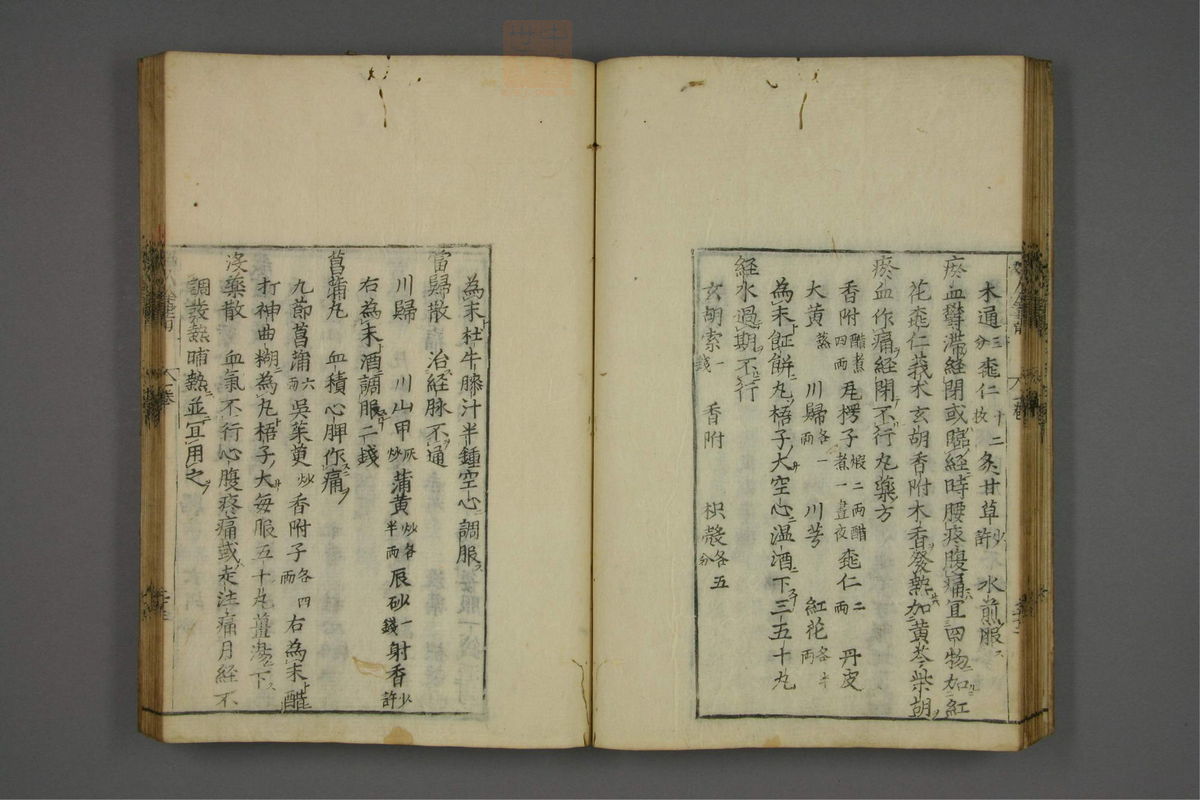 木通三分 桃仁十二枚 炙甘草少許 水煎服
瘀血欝滞経閉或臨経時腰疼腹痛宜四物加紅
花桃仁莪朮玄胡香附木香發熱加黄芩柴胡
瘀血作痛経閉不行丸藥方
香附醋煮四两 瓦楞子煅二两醋煮一晝夜 桃仁二两 丹皮
大黄蒸 川歸各一两 川芎 紅花各半两
為末䭔餅丸梧子大空心温酒下三五十丸
経水過期不行
玄胡索一錢 香附 枳殻各五分
為末杜牛膝汁半鍾空心調服
當歸散 治経脉不通
川歸 川山甲灰炒 蒲黄炒各半两 辰砂一錢 射香少許
右為末酒調服二錢
菖蒲丸 血積心脾作痛
九節菖蒲六两 吳茱萸炒 香附子各四两 右為末醋
打神曲糊為丸梧子大每服五十丸薑湯下
没藥散 血氣不行心腹疼痛或走注痛月経不
調發熱晡熱並宜用之